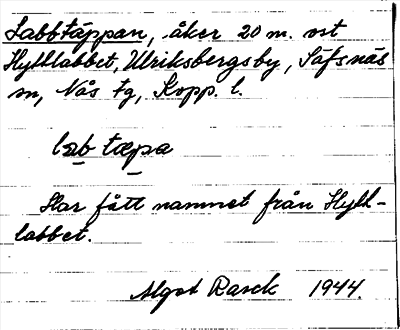 Labbtäppan, åker 20 m. ost
Hyttlabbet, Ulriksbergsby, Säfsnäs
sn, Nås tg, Kopp. l.
lab tæpa
Har fått namnet från Hytt-
labbet.
Algot Rasck 1944.